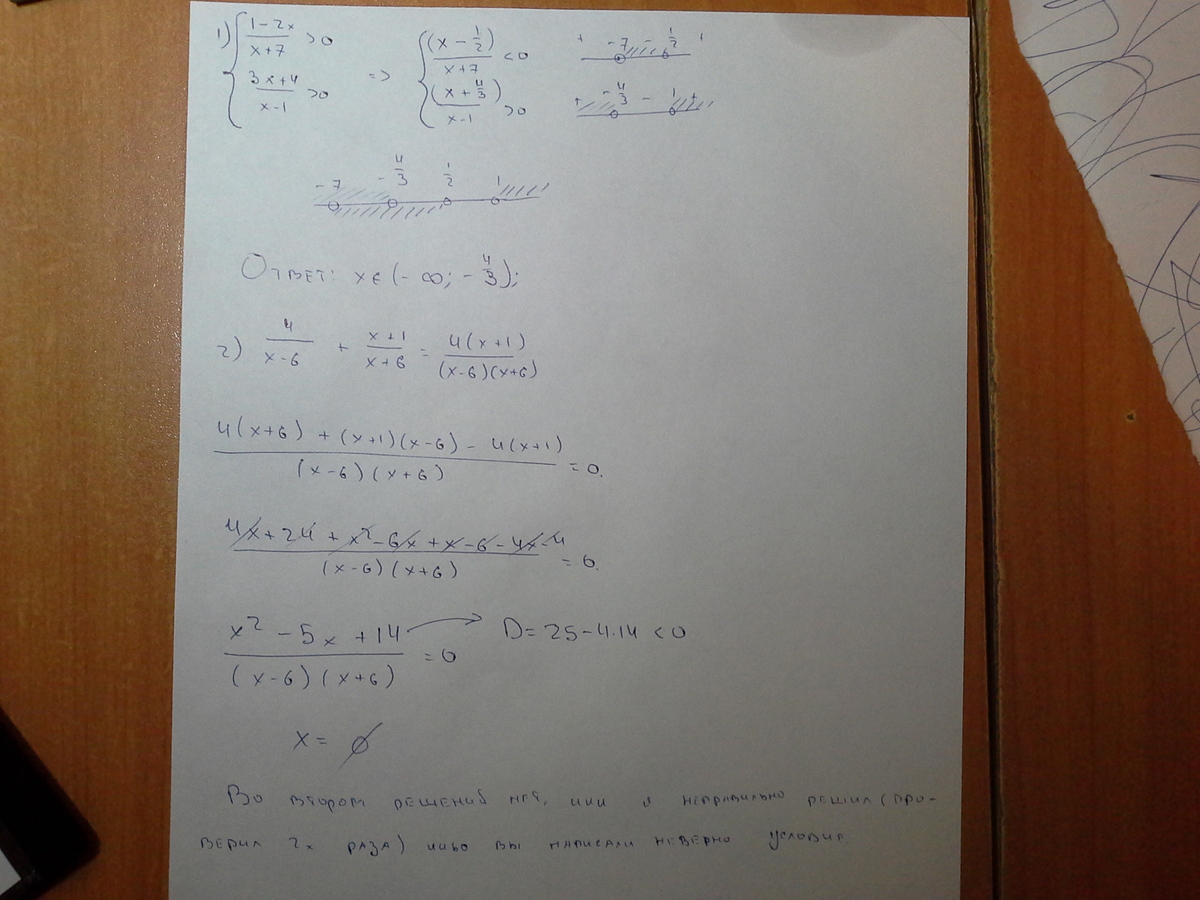 1) { (1-2x)/(x+7) >0 => { (x - 1/2)/(x+7) <0 + -7 - 1/2 +
{ (3x+4)/(x-1) >0 { (x + 4/3)/(x-1) >0 + -4/3 - 1 +
-7 -4/3 1/2 1
Ответ: x∈(-∞; -4/3);
2) 4/(x-6) + (x+1)/(x+6) = 4(x+1)/((x-6)(x+6))
(4(x+6) + (x+1)(x-6) - 4(x+1))/((x-6)(x+6)) = 0.
(4x+24 + x²-6x+x-6-4x-4)/((x-6)(x+6)) = 0.
(x² - 5x + 14)/((x-6)(x+6)) = 0 → D = 25-4·14 <0
x = ∅
Во втором решений нет, или я неправильно решил (про-
верил 2х раза) либо вы написали неверно условия.